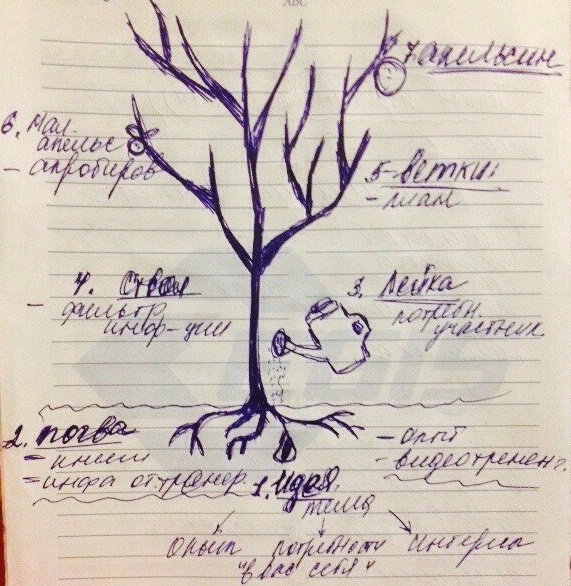 7. апельсин
6. мал.
апельс
- апробиров
5 - ветки
- план
4. ствол
- фильтр
инф-ции
3. Лейка
потребн.
участник
2. почва
- книги
- инфа от тренер.
- опыт
- видеотренинг.
1. Идея
тема
опыт потребности интересы
"в вас себя"